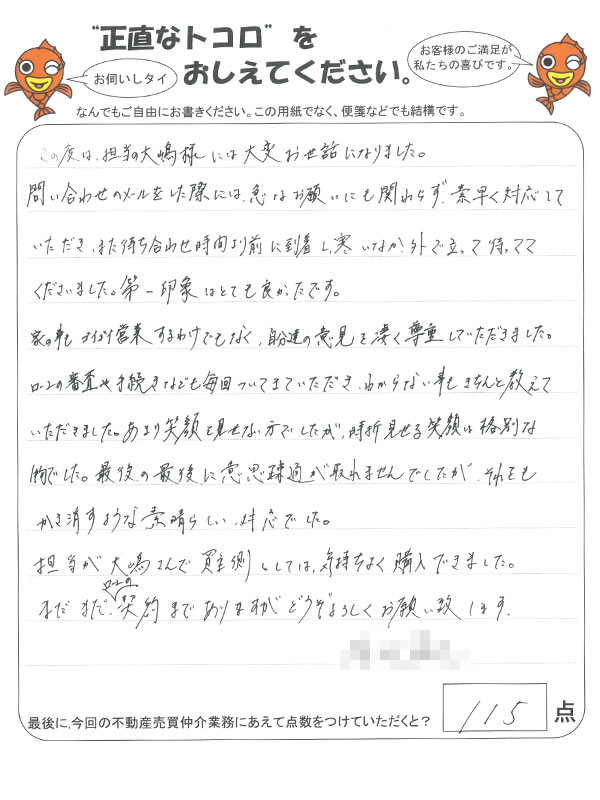 "正直なトコロ"を
おしえてください。
お伺いしタイ
お客様のご満足が
私たちの喜びです。
なんでもご自由にお書きください。この用紙でなく、便箋などでも結構です。
この度は、担当の大嶋様には大変お世話になりました。
問い合わせのメールをした際には、急なお願いにも関わらず、素早く対応して
いただき、また待ち合わせ時間より前に到着し、寒いなか外で立って待ってて
くださいました。第一印象はとても良かったです。
家の事も グイグイ営業するわけでもなく、自分達の意見を凄く尊重していただきました。
ローンの審査や手続きなども毎回ついてきていただき、わからない事もきちんと教えて
いただきました。あまり笑顔を見せない方でしたが、時折見せる笑顔は格別な
物でした。最後の最後に意思疎通が取れませんでしたが、それをも
かき消すような素晴らしい対応でした。
担当が大嶋さんで買主側としては、気持ちよく購入できました。
まだまだ、ローンの契約までありますがどうぞよろしくお願い致します。
最後に、今回の不動産売買仲介業務にあえて点数をつけていただくと？
115点